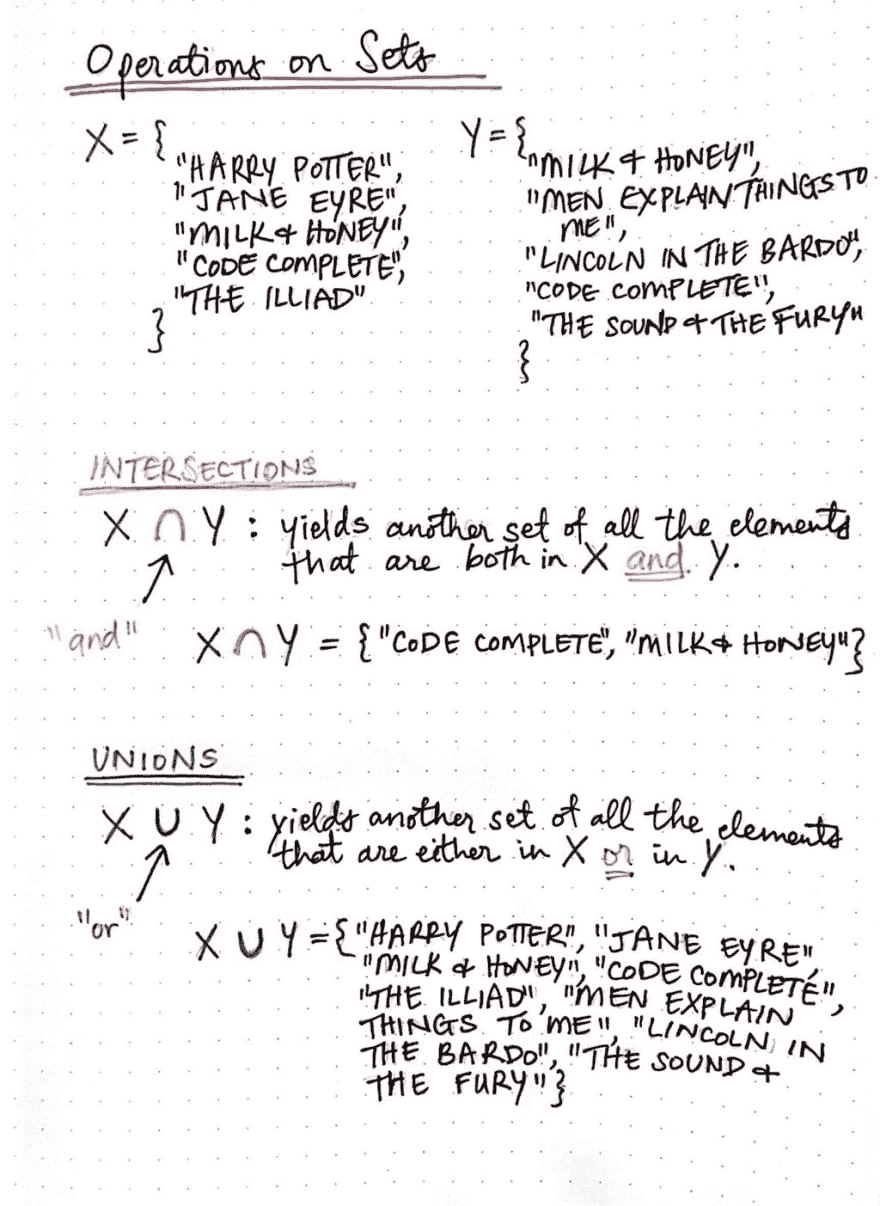 Operations on Sets
X = {
"HARRY POTTER",
"JANE EYRE",
"MILK & HONEY",
"CODE COMPLETE",
"THE ILLIAD"
}
Y = {
"MILK & HONEY",
"MEN EXPLAIN THINGS TO
ME",
"LINCOLN IN THE BARDO",
"CODE COMPLETE",
"THE SOUND & THE FURY"
}
INTERSECTIONS
X ∩ Y : yields another set of all the elements
that are both in X and Y.
"and"
X ∩ Y = {"CODE COMPLETE", "MILK & HONEY"}
UNIONS
X ∪ Y : yields another set of all the elements
that are either in X or in Y.
"or"
X ∪ Y = {"HARRY POTTER", "JANE EYRE"
"MILK & HONEY", "CODE COMPLETE",
"THE ILLIAD", "MEN EXPLAIN
THINGS TO ME", "LINCOLN IN
THE BARDO", "THE SOUND &
THE FURY"}